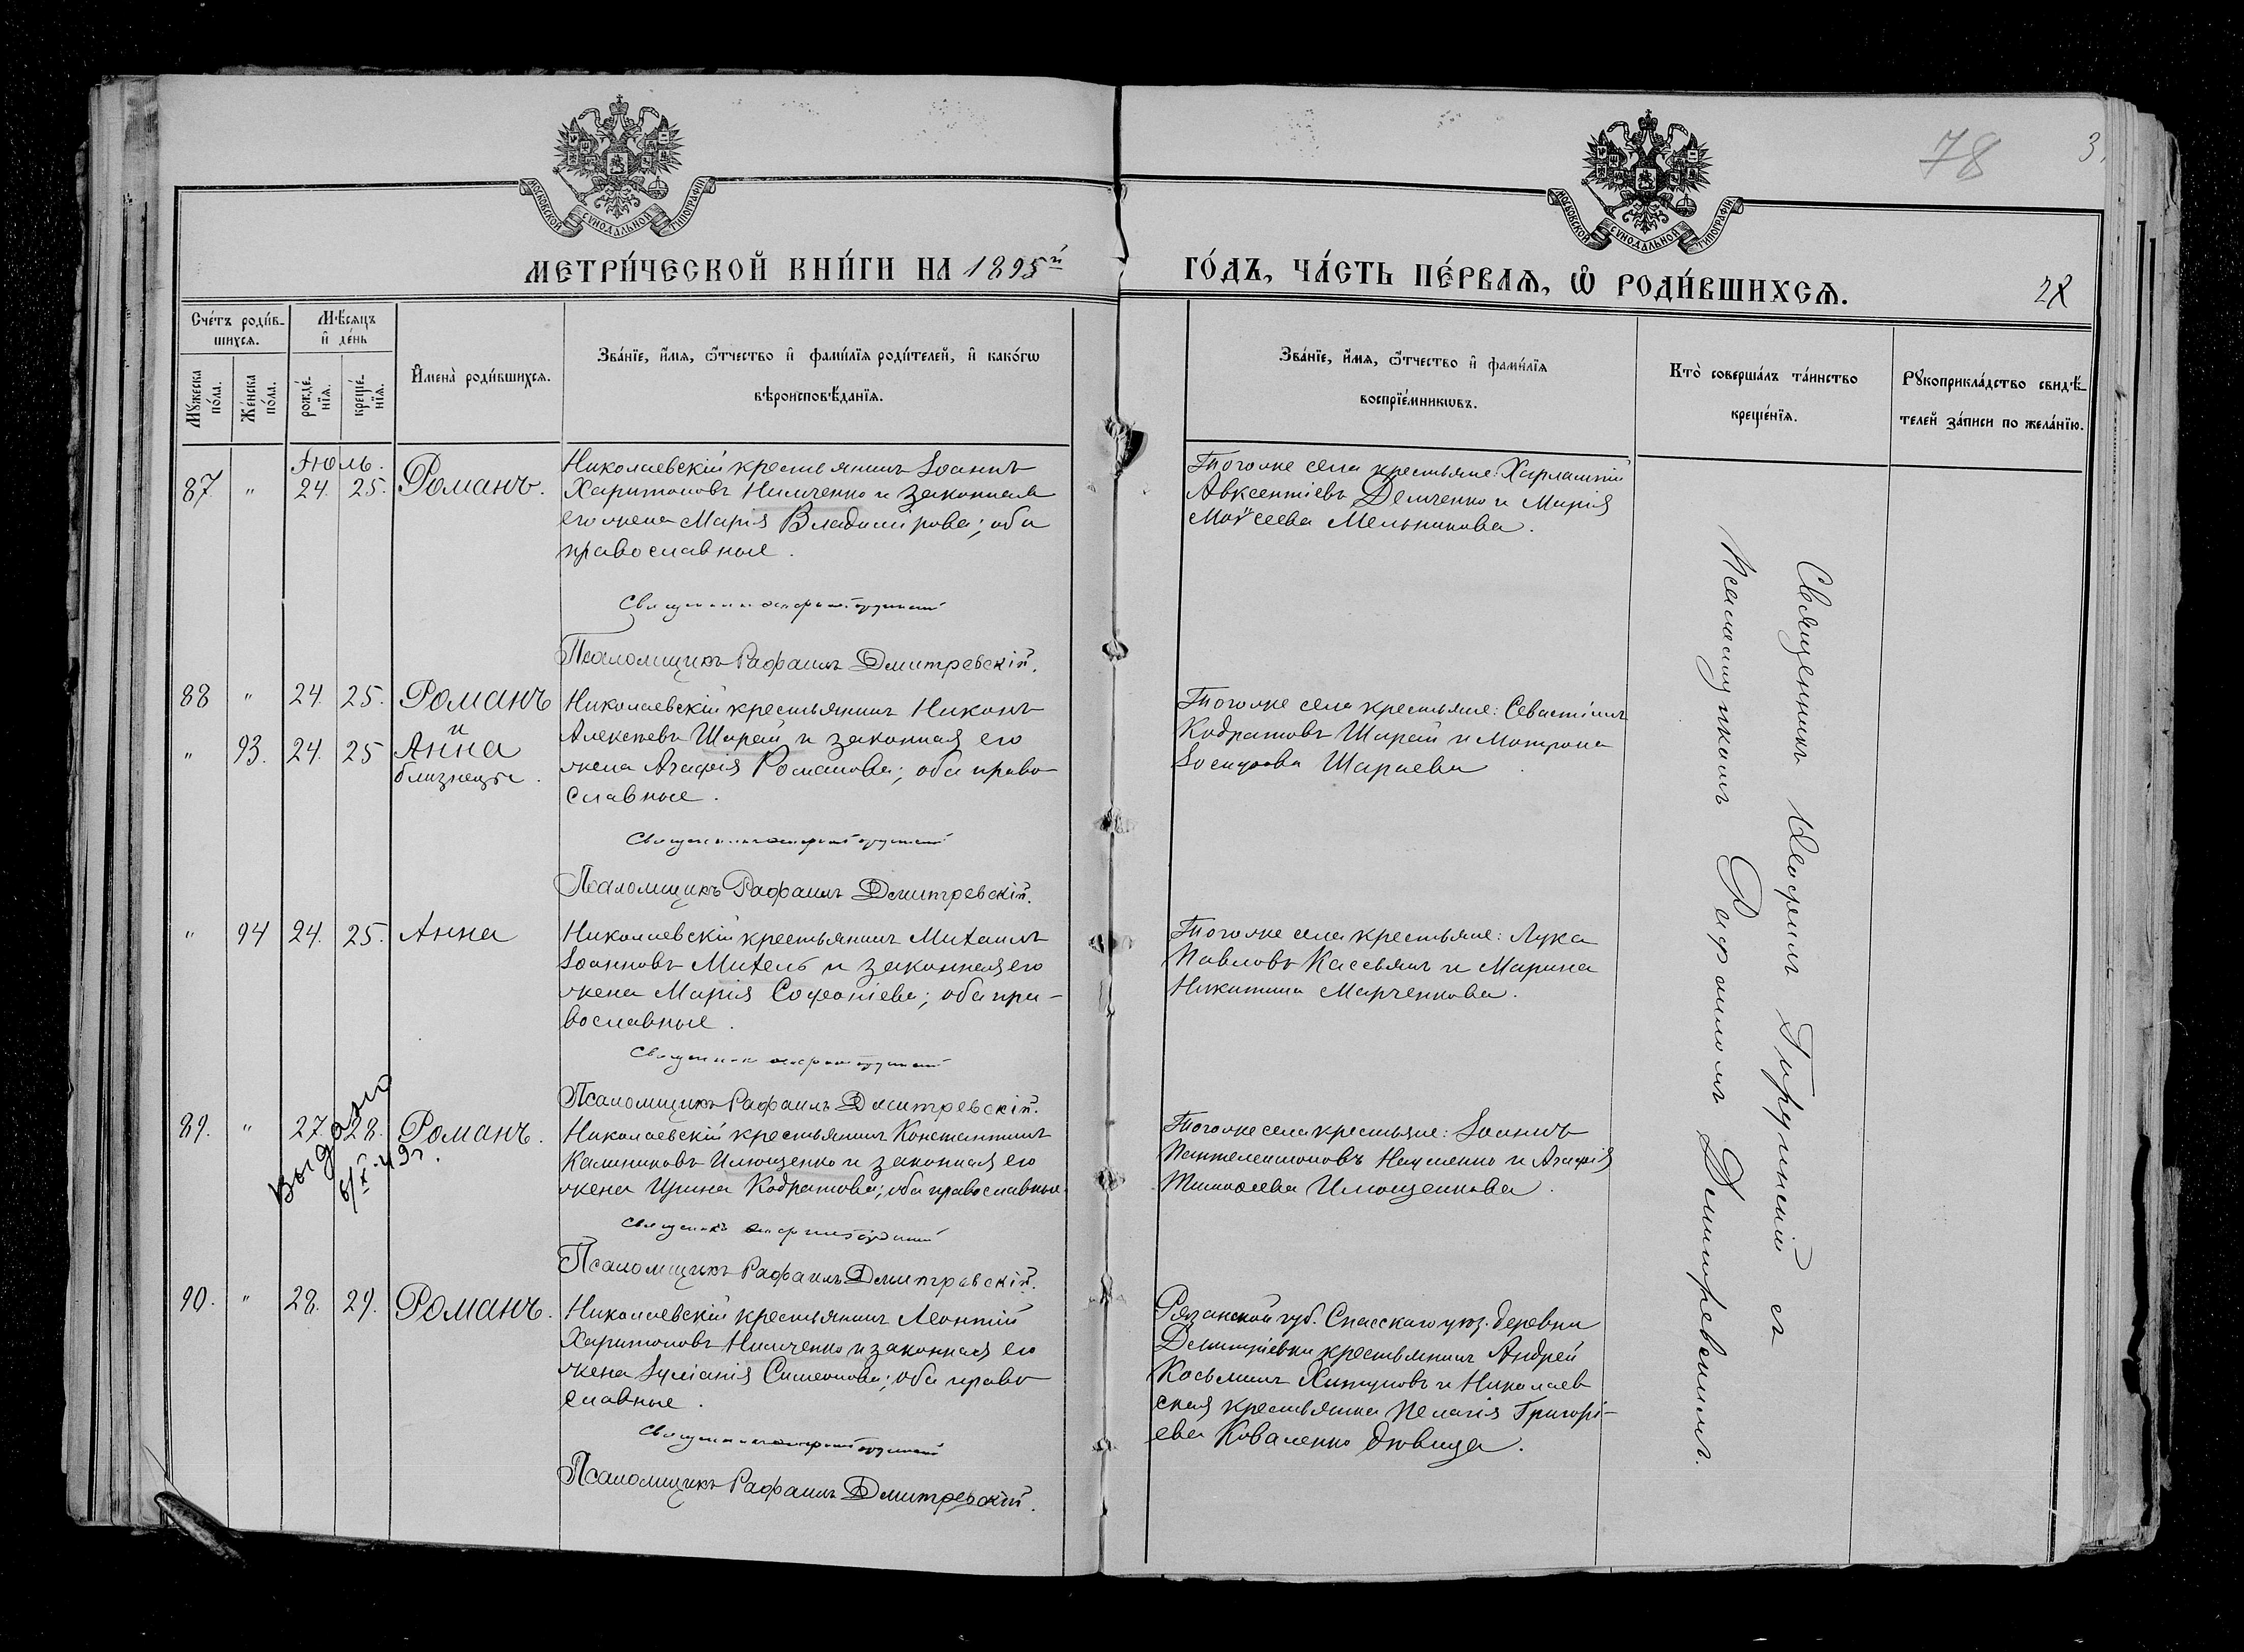 78
3
МОСКОВСКОЙ СѴНОДАЛЬНОЙ ТИПОГРАФІИ
МОСКОВСКОЙ СѴНОДАЛЬНОЙ ТИПОГРАФІИ
МЕТРИ́ЧЕСКОЙ КНИ́ГИ НА 1895й
ГО́ДЪ, ЧА́СТЬ ПЕ́РВАѦ, Ѽ РОДИ́ВШИХСѦ.
28
Сче́тъ роди́в-
шихсѧ.
Мꙋжеска по́ла.
Же́нска по́ла.
Мѣ́сѧцъ и҆ де́нь
рожде́-
нїѧ.
креще́-
нїѧ.
И҆мена̀ роди́вшихсѧ.
Зва́нїе, и҆́мѧ, ѻ҆́тчество и҆ фами́лїѧ роди́телей, и҆ како́гѡ
вѣроисповѣ́данїѧ.
Зва́нїе, и҆́мѧ, ѻ҆́тчество и҆ фами́лїѧ
воспрїе́мникѡвъ.
Кто̀ соверша́лъ та́инство
креще́нїѧ.
Рꙋкоприкла́дство свидѣ́-
телей за́писи по жела́нїю.
Іюль.
87. " 24. 25. Романъ.
Николаевскій крестьянинъ Іоаннъ
Харитоновъ Нимченко и законная
его жена Марія Владимірова; оба
православные.
Священникъ
Псаломщикъ Рафаилъ Дмитревскій.
Тогоже села крестьяне: Харлампій
Авксентіевъ Демченко и Марія
Моѵсеева Мельникова.
88 " 24. 25. Романъ
и
" 93. 24. 25 Анна
близнецы.
Николаевскій крестьянинъ Никонъ
Алексѣевъ Шарай и законная его
жена Агафія Романова; оба право-
славные.
Священникъ
Псаломщикъ Рафаилъ Дмитревскій.
Тогоже села крестьяне: Севастіанъ
Кодратовъ Шарай и Матрона
Іосифова Шараева
" 94 24. 25. Анна
Николаевскій крестьянинъ Михаилъ
Іоанновъ Михель и законная его
жена Марія Софоніева; оба пра-
вославные.
Священникъ
Псаломщикъ Рафаилъ Дмитревскій.
Тогоже села крестьяне: Лука
Павловъ Кассьянъ и Марина
Никитина Марченкова.
89. " 27. 28. Романъ.
Выдано
Николаевскій крестьянинъ Константинъ
Калиниковъ Илющенко и законная его
жена Ирина Кодратова; оба православные.
Священникъ
Псаломщикъ Рафаилъ Дмитревскій.
Тогоже села крестьяне: Іоаннъ
Пантелеимоновъ Науменко и Агафія
Тимофеева Илющенкова.
90. " 28. 29. Романъ.
Николаевскій крестьянинъ Леонтій
Харитоновъ Нимченко и законная его
жена Іуліанія Симеонова; оба право
славные.
Священникъ
Псаломщикъ Рафаилъ Дмитревскій.
Рязанской губ. Спасскаго уѣз. деревни
крестьянинъ Андрей
Косьминъ и Николаев
ская крестьянка Пелагія Григорі-
ева Коваленко дѣвица.
Священникъ съ
Псаломщикомъ Рафаиломъ Дмитревскимъ.